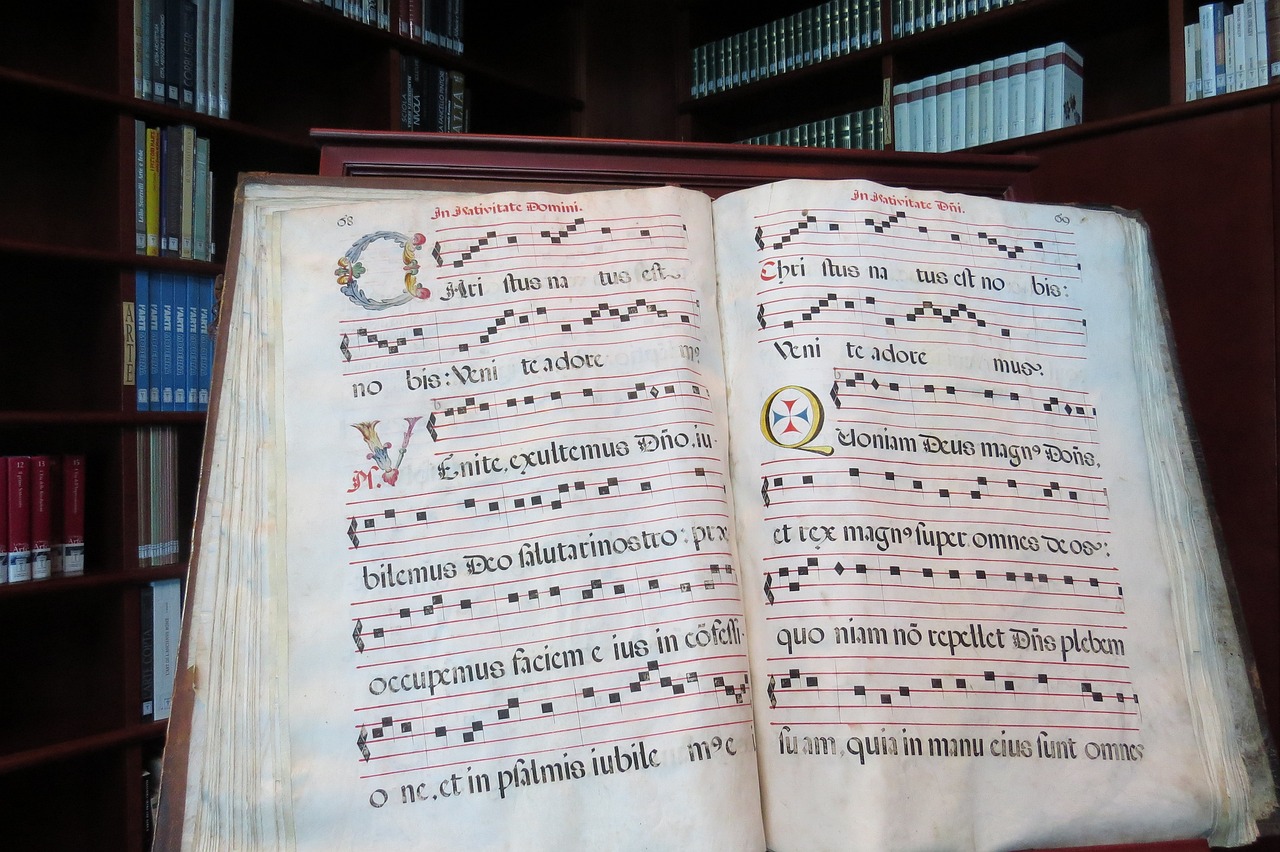 68
In Nativitate Domini.
CHri stus na tus est
no bis: Veni te adore m9
Ps. VEnite, exultemus Dño, iu-
bilemus Deo salutari nostro: præ
occupemus faciem e ius in cõfessi-
o ne, et in psalmis iubile m9 e
69
In Nativitate Dñi.
Chri stus na tus est no bis:
Veni te adore mus.
Quoniam Deus magn9 Dons,
et rex magn9 super omnes deos:
quo niam nõ repellet Dñs plebem
su am, quia in manu eius sunt omnes
ARTE
L'ARTE
L'ARTE
L'ARTE
L'ARTE
L'ARTE